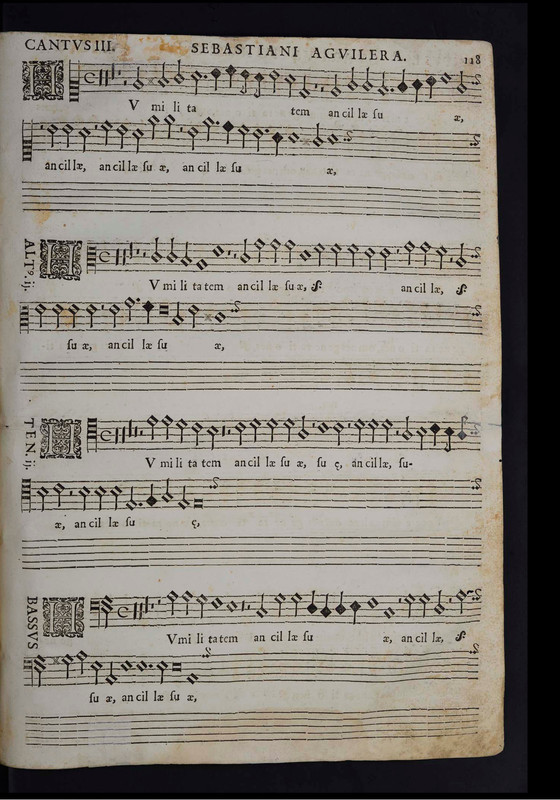 CANTVS III. SEBASTIANI AGVILERA. 118
HVmi li ta tem ancil læ ſu æ,
ancillæ, ancillæ ſu æ, ancil læ ſu æ,
ALTꝰ. ij.
HVmi li ta tem ancil læ ſu æ, ancil læ,
ſu æ, ancil læ ſu æ,
TEN. ij.
HVmi li ta tem ancil læ ſu æ, ſu ę, ancillæ, ſu-
æ, ancil læ ſu ę,
BASSVS
HVmi li ta tem an cil læ ſu æ, ancil læ,
ſu æ, ancil læ ſu æ,